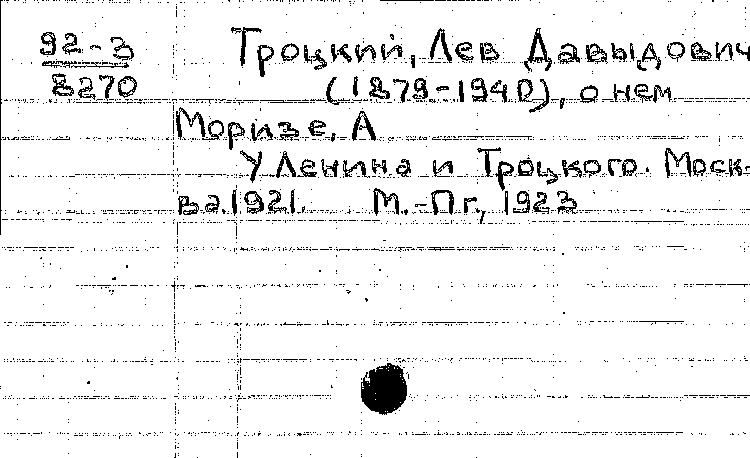 92-3
8270
Троцкий, Лев Давыдович
(1879-1940), о нем
Моризе, А
У Ленина и Троцкого. Моск-
ва.1921. М.-Пг., 1923